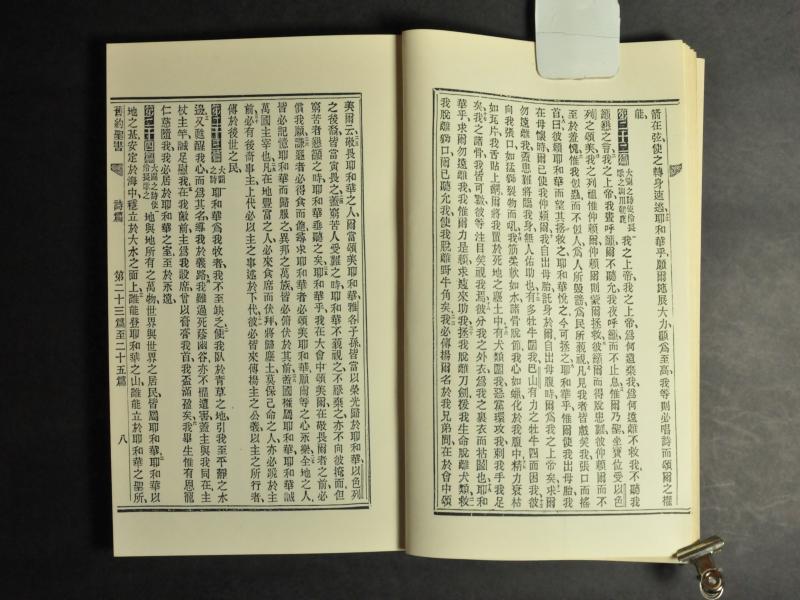 箭在弦使之轉身速逃耶和華乎願爾施展大力顯爲至高我等則必唱詩而頌爾之權
能
第二十二篇 我之上帝我之上帝爲何遺棄我爲何遠離不救我不聽我
籲懇之言我之上帝我晝呼籲爾不聽允我夜呼籲而不止息惟爾乃聖坐寶位受以色
列之頌美我之列祖惟仰賴爾仰賴爾則蒙爾拯救彼籲爾而得脫患難彼仰賴爾而不
至於羞愧惟我似蟲而不似人爲人所毀謗爲民所藐視凡見我者皆戲笑我張口而搖
首曰彼賴耶和華而望其拯救之耶和華悅之今可拯之耶和華乎惟爾使我出母胎我
在母懷時爾已使我仰賴爾我自出母胎託身於爾自出母腹時爾爲我之上帝矣求爾
勿遠離我蓋患難將臨我身無人佑助也有多牡牛圍我巴山有力之牡牛四面困我彼
向我張口如猛獅裂物而吼我筋柔軟如水諸骨脫節我心如蠟化於我腹中精力衰枯
如瓦片我舌貼上齶爾將我置於死地之塵土中有犬類圍我惡黨環攻我刺我手我足
矣我之諸骨我皆可數彼等注目矣視我焉彼分我之外衣爲我之裏衣而拈鬮也耶和
華乎求爾勿遠離我我惟爾力是賴求速來助我拯我脫離刀劍援我生命脫離犬類救
我脫離獅口爾已聽允我使我脫離野牛角矣我必傳揚爾名於我兄弟間在於會中頌
美爾云敬畏耶和華之人爾當頌美耶和華雅各子孫皆以榮光歸於耶和華以色列
之後裔皆當寅畏之蓋窮苦人受難之時耶和華不藐視之不厭棄之亦不向彼掩面但
窮苦者懇籲之時耶和華垂聽之矣耶和華乎我在大會中頌美爾在敬畏爾者之前必
償我願謙遜者必得食而飽尋求耶和華者必頌美耶和華願爾等之心永樂全地之人
皆必記憶耶和華而歸服之異邦之萬族皆必俯伏於其前蓋國權屬耶和華耶和華誠
萬國主宰也凡在地豐富之人必來食席而伏拜將歸塵土莫保己命之人亦必跪於主
前必有後裔事主上代必以主之事述於下代彼必皆來傳揚主之公義以主之所行者
傳於後世之民
第二十三篇 大衛之詩 耶和華爲我牧者我不至缺乏使我臥於青草之地引我至平靜之水
邊又甦醒我心而爲其名導我於義路我雖過死蔭幽谷亦不懼遭害蓋主與我同在主
杖主竿誠足慰我在我敵前主爲我設席曾以膏膏我首我盃滿盈矣我畢生惟有恩寵
仁慈隨我我必居於耶和華之室至於永遠
第二十四篇 地與地所有之萬物世界與世界之居民皆屬耶和華耶和華以
地之基安定於海中穩立於大水之面上誰能登耶和華之山誰能立於耶和華之聖所
舊約聖書 詩篇 第二十三篇至二十五篇 八